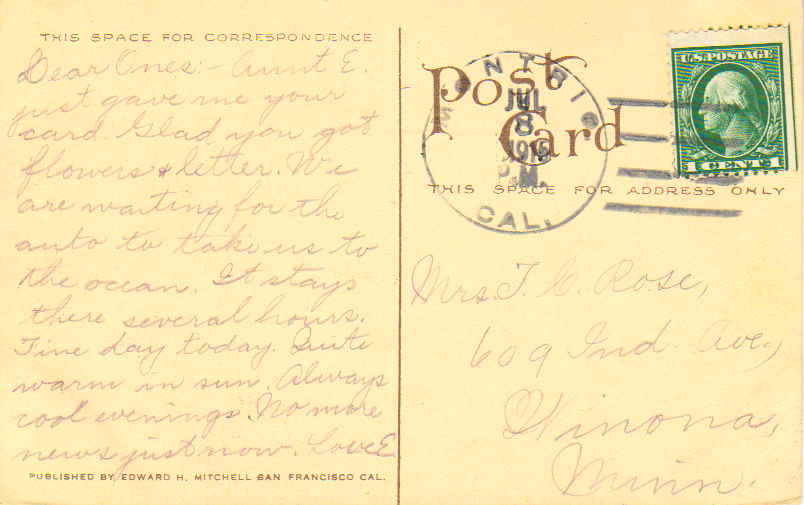 THIS SPACE FOR CORRESPONDENCE
Dear Ones:- Aunt E.
just gave me your
card. Glad you got
flowers & letter. We
are waiting for the
auto to take us to
the ocean. It stays
there several hours.
Fine day today. Quite
warm in sun. Always
cool evenings. No more
news just now. Love E.
PUBLISHED BY EDWARD H. MITCHELL SAN FRANCISCO CAL.
Post
Card
JUL
8
P.M.
CAL.
U.S. POSTAGE
1 CENT 1
THIS SPACE FOR ADDRESS ONLY
Mrs. T. C. Rose,
609 Ind. Ave.,
Winona,
Minn.